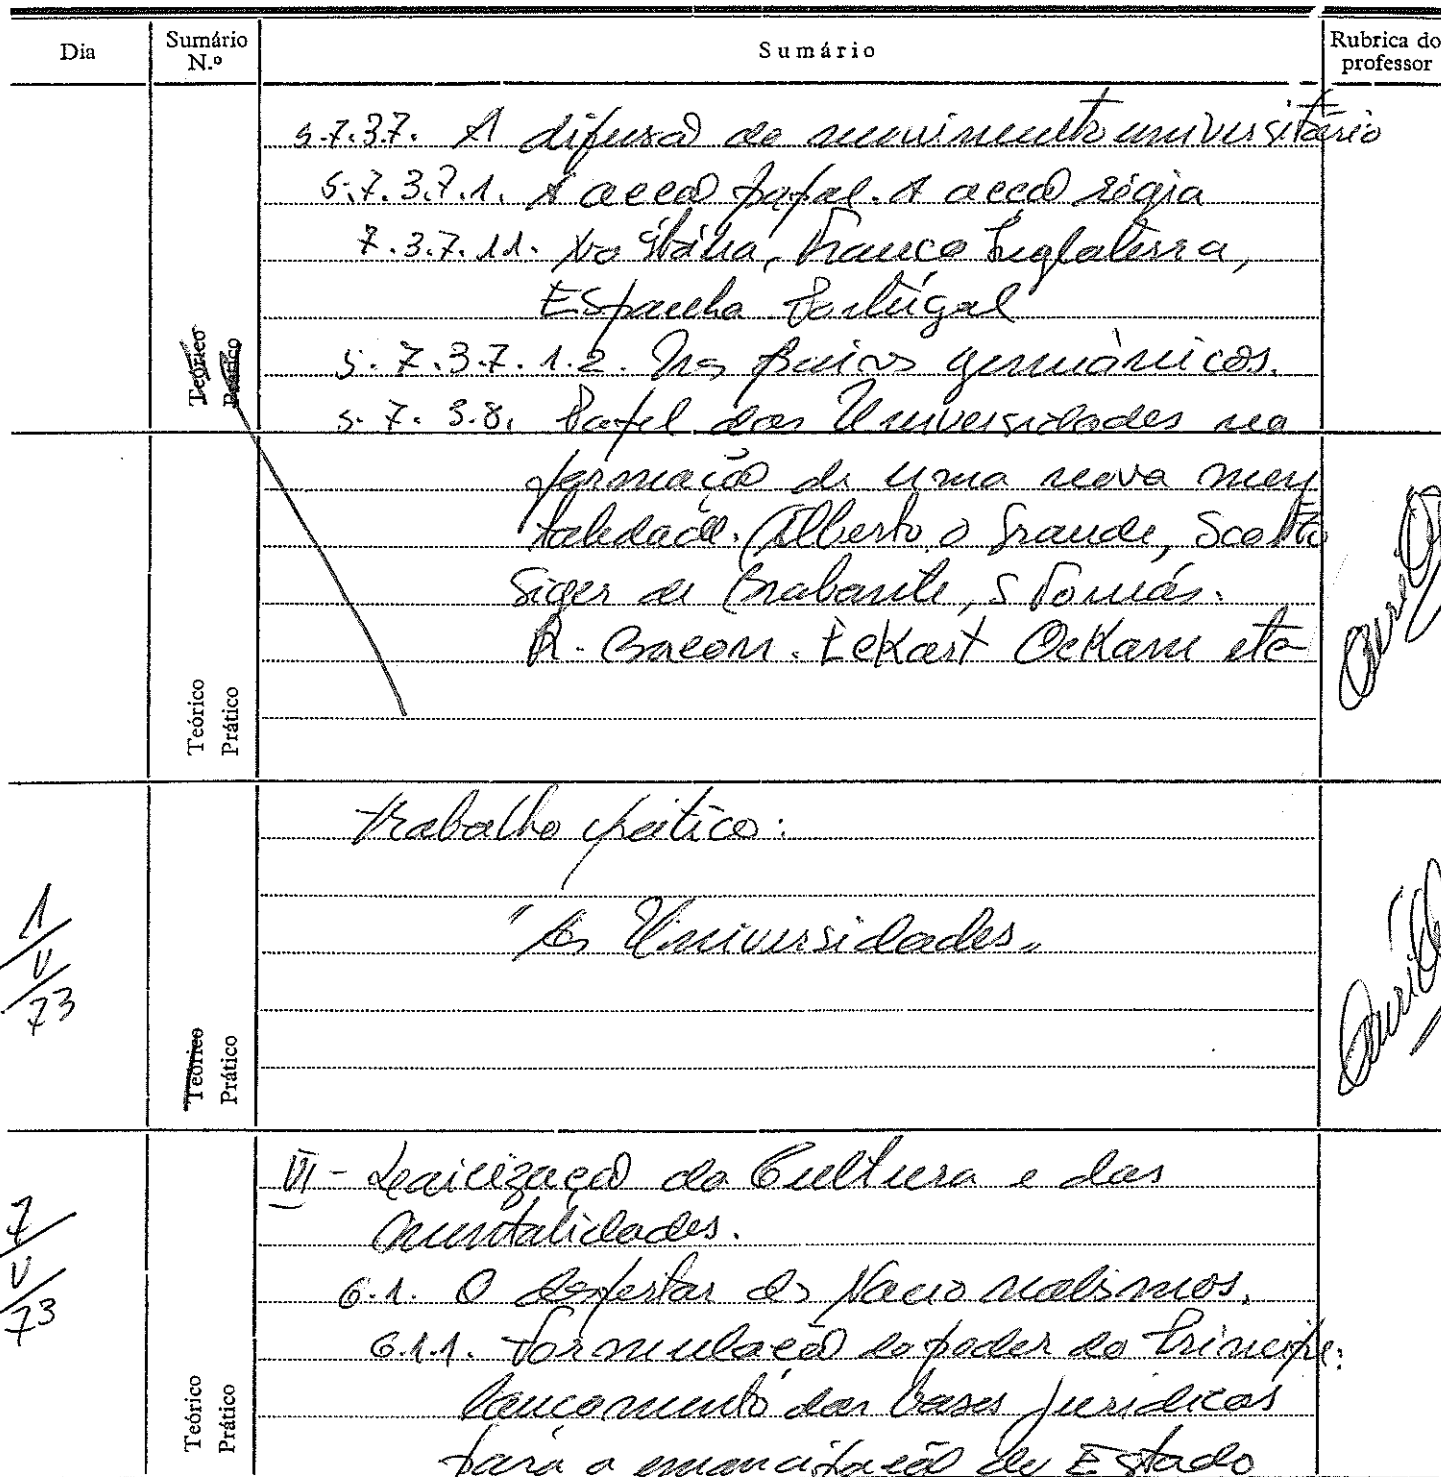 Dia
Sumário N.º
Sumário
Rubrica do professor
5.7.3.7. A difusão do movimento universitário
5.7.3.7.1. A acção papal. A acção régia
7.3.7.1.1. Na Itália, França Inglaterra,
Espanha Portugal
5.7.3.7.1.2. Nos países germânicos.
Teórico
Prático
5.7.3.8. Papel das Universidades na
formação de uma nova men
talidade. (Alberto o Grande, Scotto
Siger de Brabante, S Tomás.
R. Bacon. Eckart Ockam etc
Teórico
Prático
Trabalho prático:
1/V/73
"As Universidades"
Teórico
Prático
VI - Laicização da Cultura e das
mentalidades.
7/V/73
6.1. O despertar dos Nacionalismos.
6.1.1. Formulação do poder do Príncipe:
lançamento das bases jurídicas
para a emancipação do Estado
Teórico
Prático